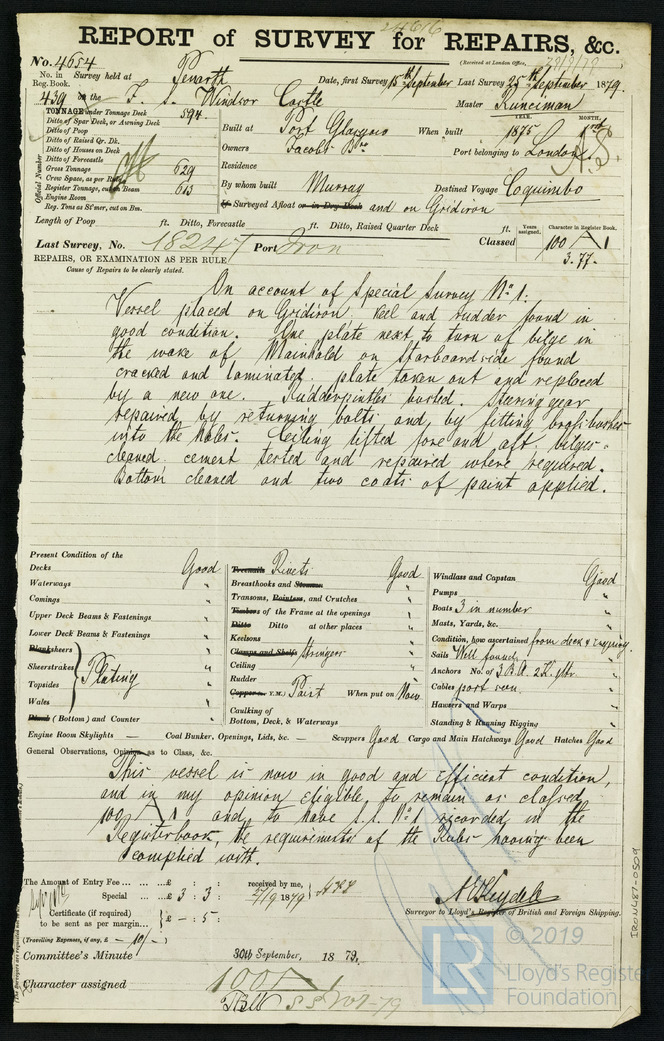 24616
REPORT of SURVEY for REPAIRS, &c.
(Received at London Office,
No. 4654
No. in Reg. Book. Survey held at Penarth Date, first Survey 15th September Last Survey 25th September 1879.
439 on the Windsor Castle Master Runciman
TONNAGE under Tonnage Deck 594
Ditto of Spar Deck, or Awning Deck
Ditto of Poop
Ditto of Raised Qr. Dk.
Ditto of Houses on Deck
Ditto of Forecastle
Gross Tonnage 629
Crew Space, as per Rule
Register Tonnage, cut on Beam 613
Engine Room
Reg. Tons as St'mer, cut on Bm.
Official Number
Built at Port Glasgow When built YEAR. 1875 MONTH.
Owners Jacobs Bro Port belonging to London
Residence
By whom built Murray Destined Voyage Coquimbo
If Surveyed Afloat or in Dry Dock and on Gridiron
Length of Poop ft. Ditto, Forecastle ft. Ditto, Raised Quarter Deck ft.
Last Survey, No. 18247 Port Iron Classed Years assigned. Character in Register Book. 100 A 1
3.77.
REPAIRS, OR EXAMINATION AS PER RULE
Cause of Repairs to be clearly stated.
On account of Special Survey No. 1.
Vessel placed on Gridiron. Keel and rudder found in
good condition. One plate next to turn of bilge in
the wake of Mainhold on Starboard side found
cracked and laminated. plate taken out and replaced
by a new one. Rudderpintles bushed. Steering gear
repaired by returning bolts and by fitting
into the holes. Ceiling lifted fore and aft. bilges
cleaned. cement tested and repaired where required.
Bottom cleaned and two coats of paint applied.
Present Condition of the
Decks Good
Waterways "
Comings "
Upper Deck Beams & Fastenings "
Lower Deck Beams & Fastenings "
Planksheers
Sheerstrakes
Topsides
Wales
Plating "
Plank (Bottom) and Counter "
Treenails Rivets Good
Breasthooks and Stemson "
Transoms, Pointers, and Crutches "
Timbers of the Frame at the openings "
Ditto Ditto at other places "
Keelsons "
Clamps and Shelfs Stringer "
Ceiling "
Rudder "
Copper Y.M.) Paint When put on Now
Caulking of
Bottom, Deck, & Waterways "
Windlass and Capstan Good
Pumps "
Boats 3 in number "
Masts, Yards, &c. "
Condition, how ascertained from deck &
Sails Well found "
Anchors No. of 3 B.A. 2 K. "
Cables port seen. "
Hawsers and Warps "
Standing & Running Rigging "
Engine Room Skylights — Coal Bunker, Openings, Lids, &c. — Scuppers Good Cargo and Main Hatchways Good Hatches Good
General Observations, Opinion as to Class, &c.
This vessel is now in good and efficient condition,
and in my opinion eligible to remain as classed
100 A 1 and to have S.S. No. 1 recorded in the
Registerbook, the requirements of the Rules having been
complied with.
The Amount of Entry Fee £ : : received by me,
Special £ 3 : 3 : 27/9 1879
Certificate (if required) to be sent as per margin £ — : 5 :
(Travelling Expenses, if any, £ — 10/—)
Surveyor to Lloyd's Register of British and Foreign Shipping.
Committee's Minute 30th September, 1879.
Character assigned 100 A 1
S S No 1-79
IRON487-0509
LR
© 2019
Lloyd's Register
Foundation